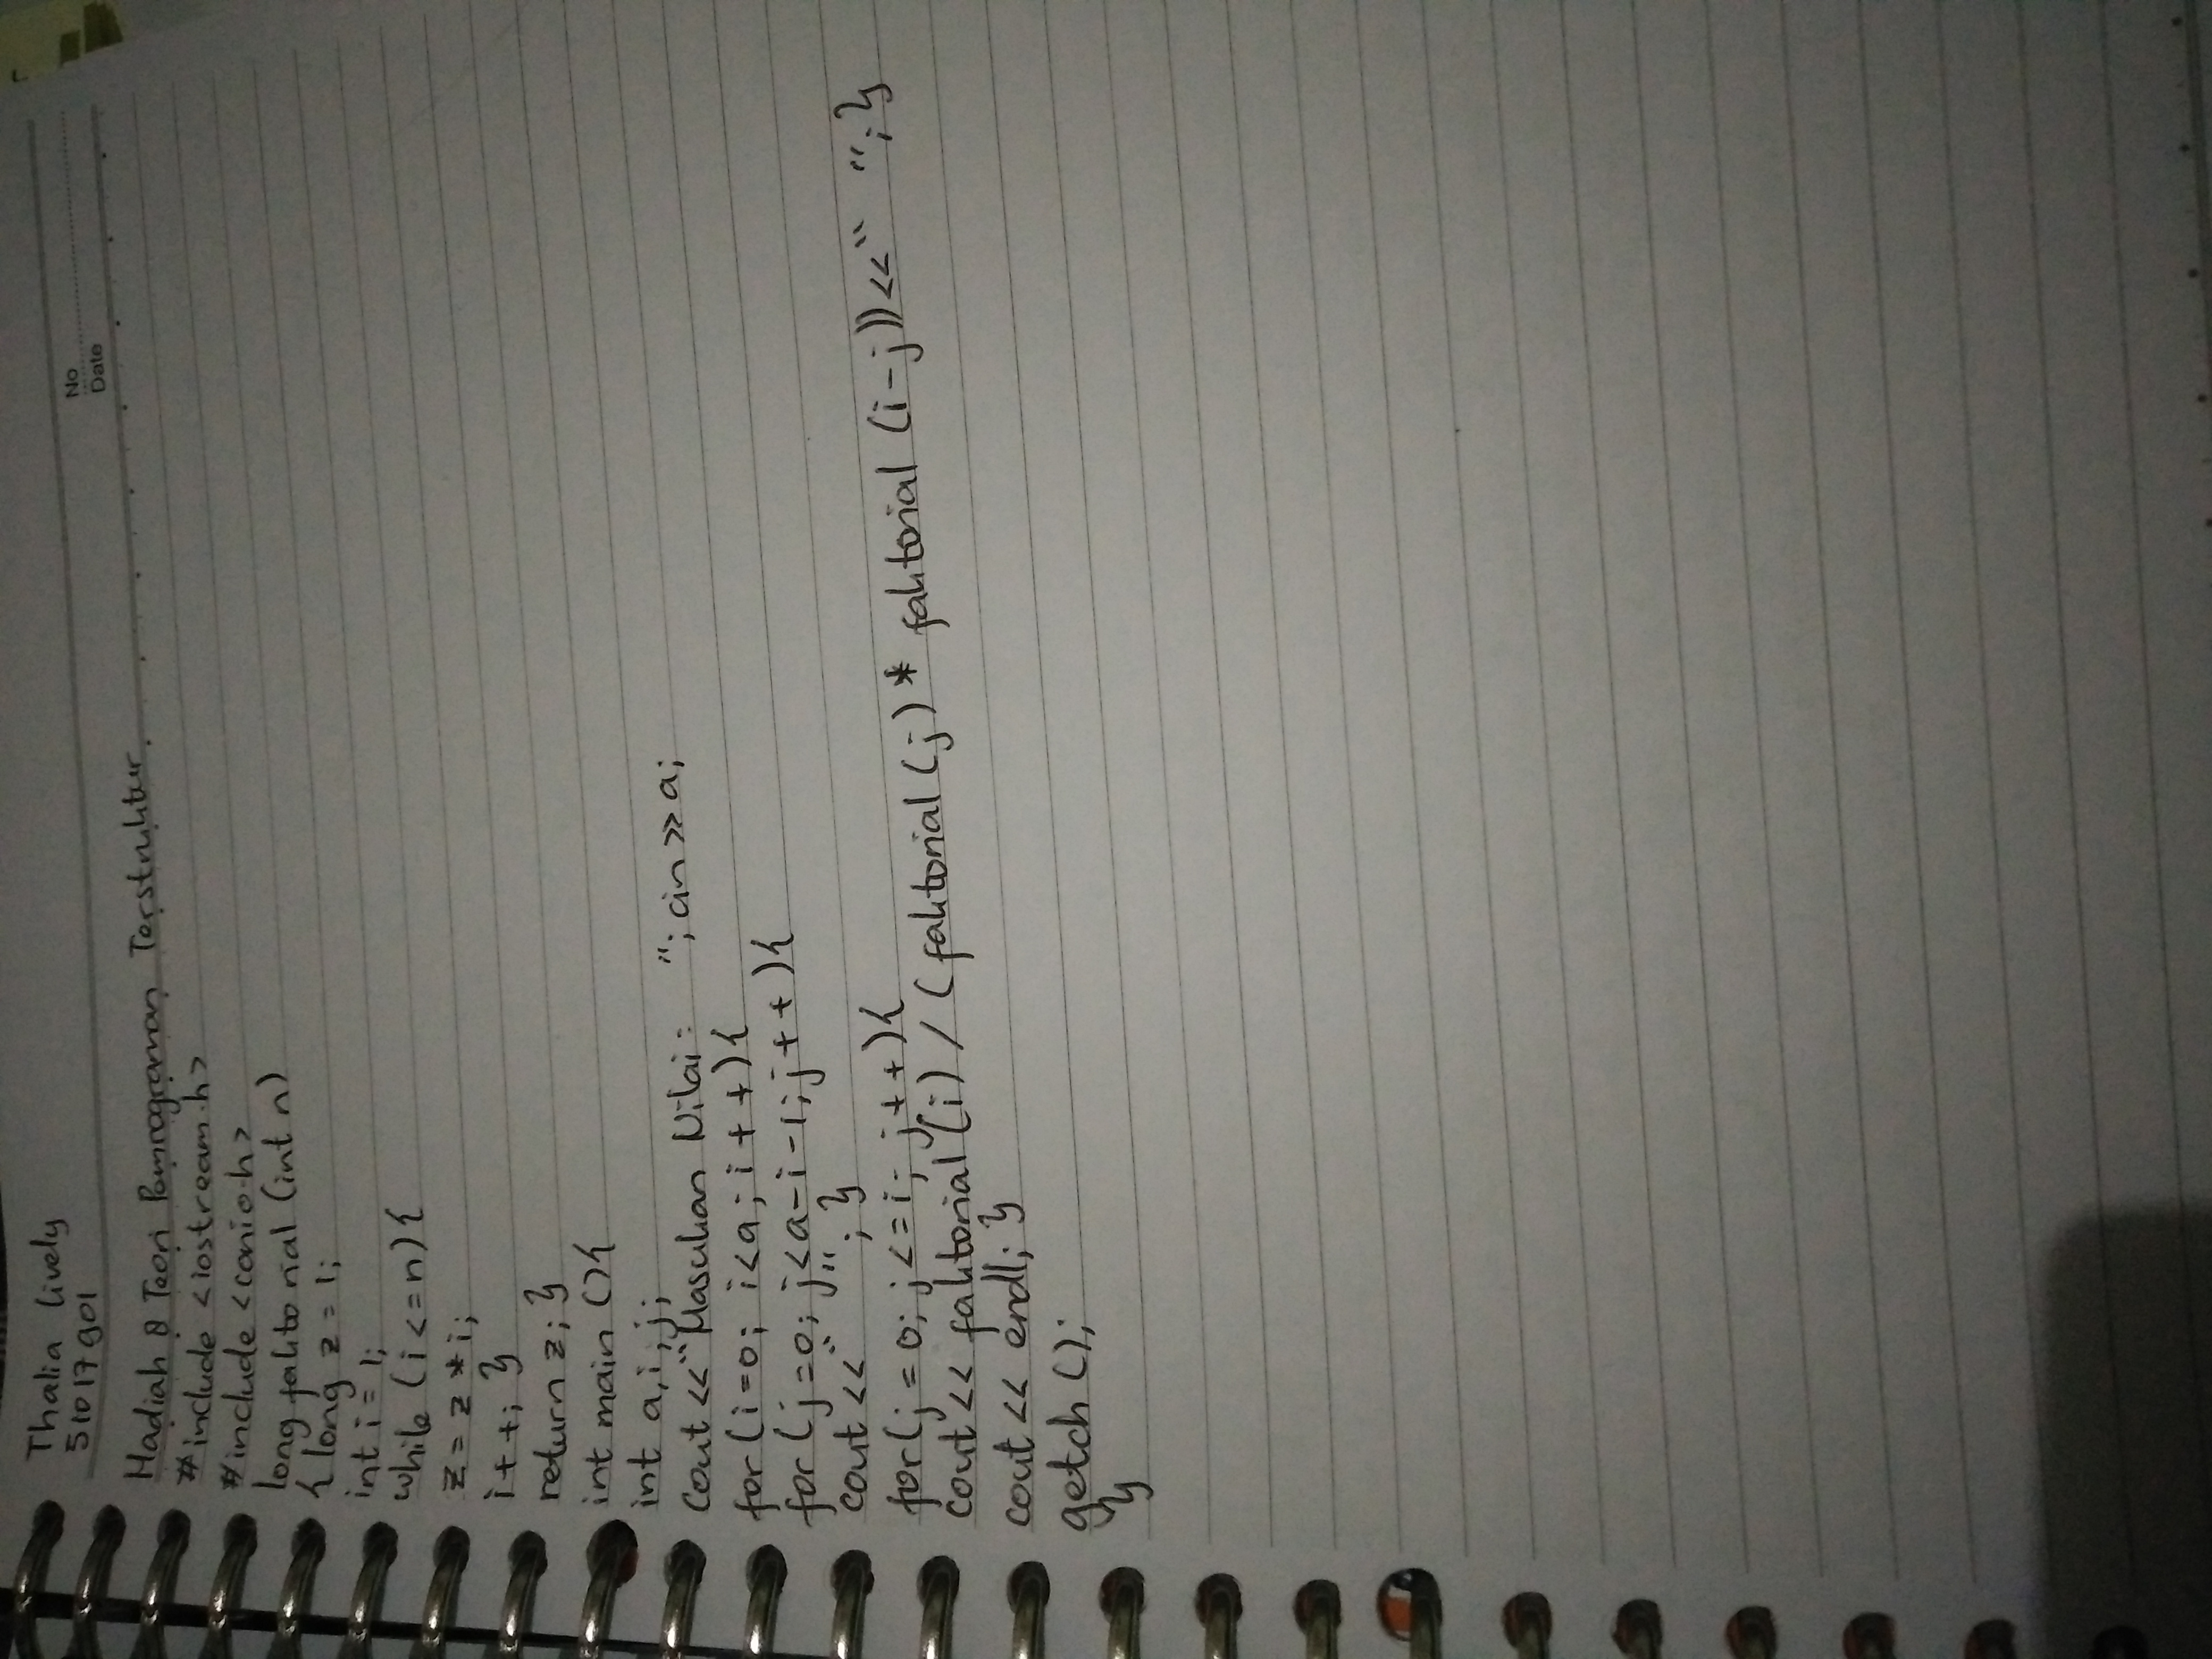 Thalia Lively
51017901
No
Date
Hadiah 8 Teori Pemrograman Terstruktur.
#include <iostream.h>
#include <conio.h>
long faktorial (int n)
{ long z = 1;
int i = 1;
while (i <= n) {
z = z * i;
i + +; }
return z; }
int main () {
int a, i, j;
cout << "Masukan Nilai :   "; cin >> a;
for (i = 0; i < a; i + +) {
for (j = 0; j < a - i - 1; j + +) {
cout << "   "; }
for (j = 0; j <= i; j + +) {
cout << faktorial (i) / (faktorial (j) * faktorial (i - j)) << "   "; }
cout << endl; }
getch ();
}